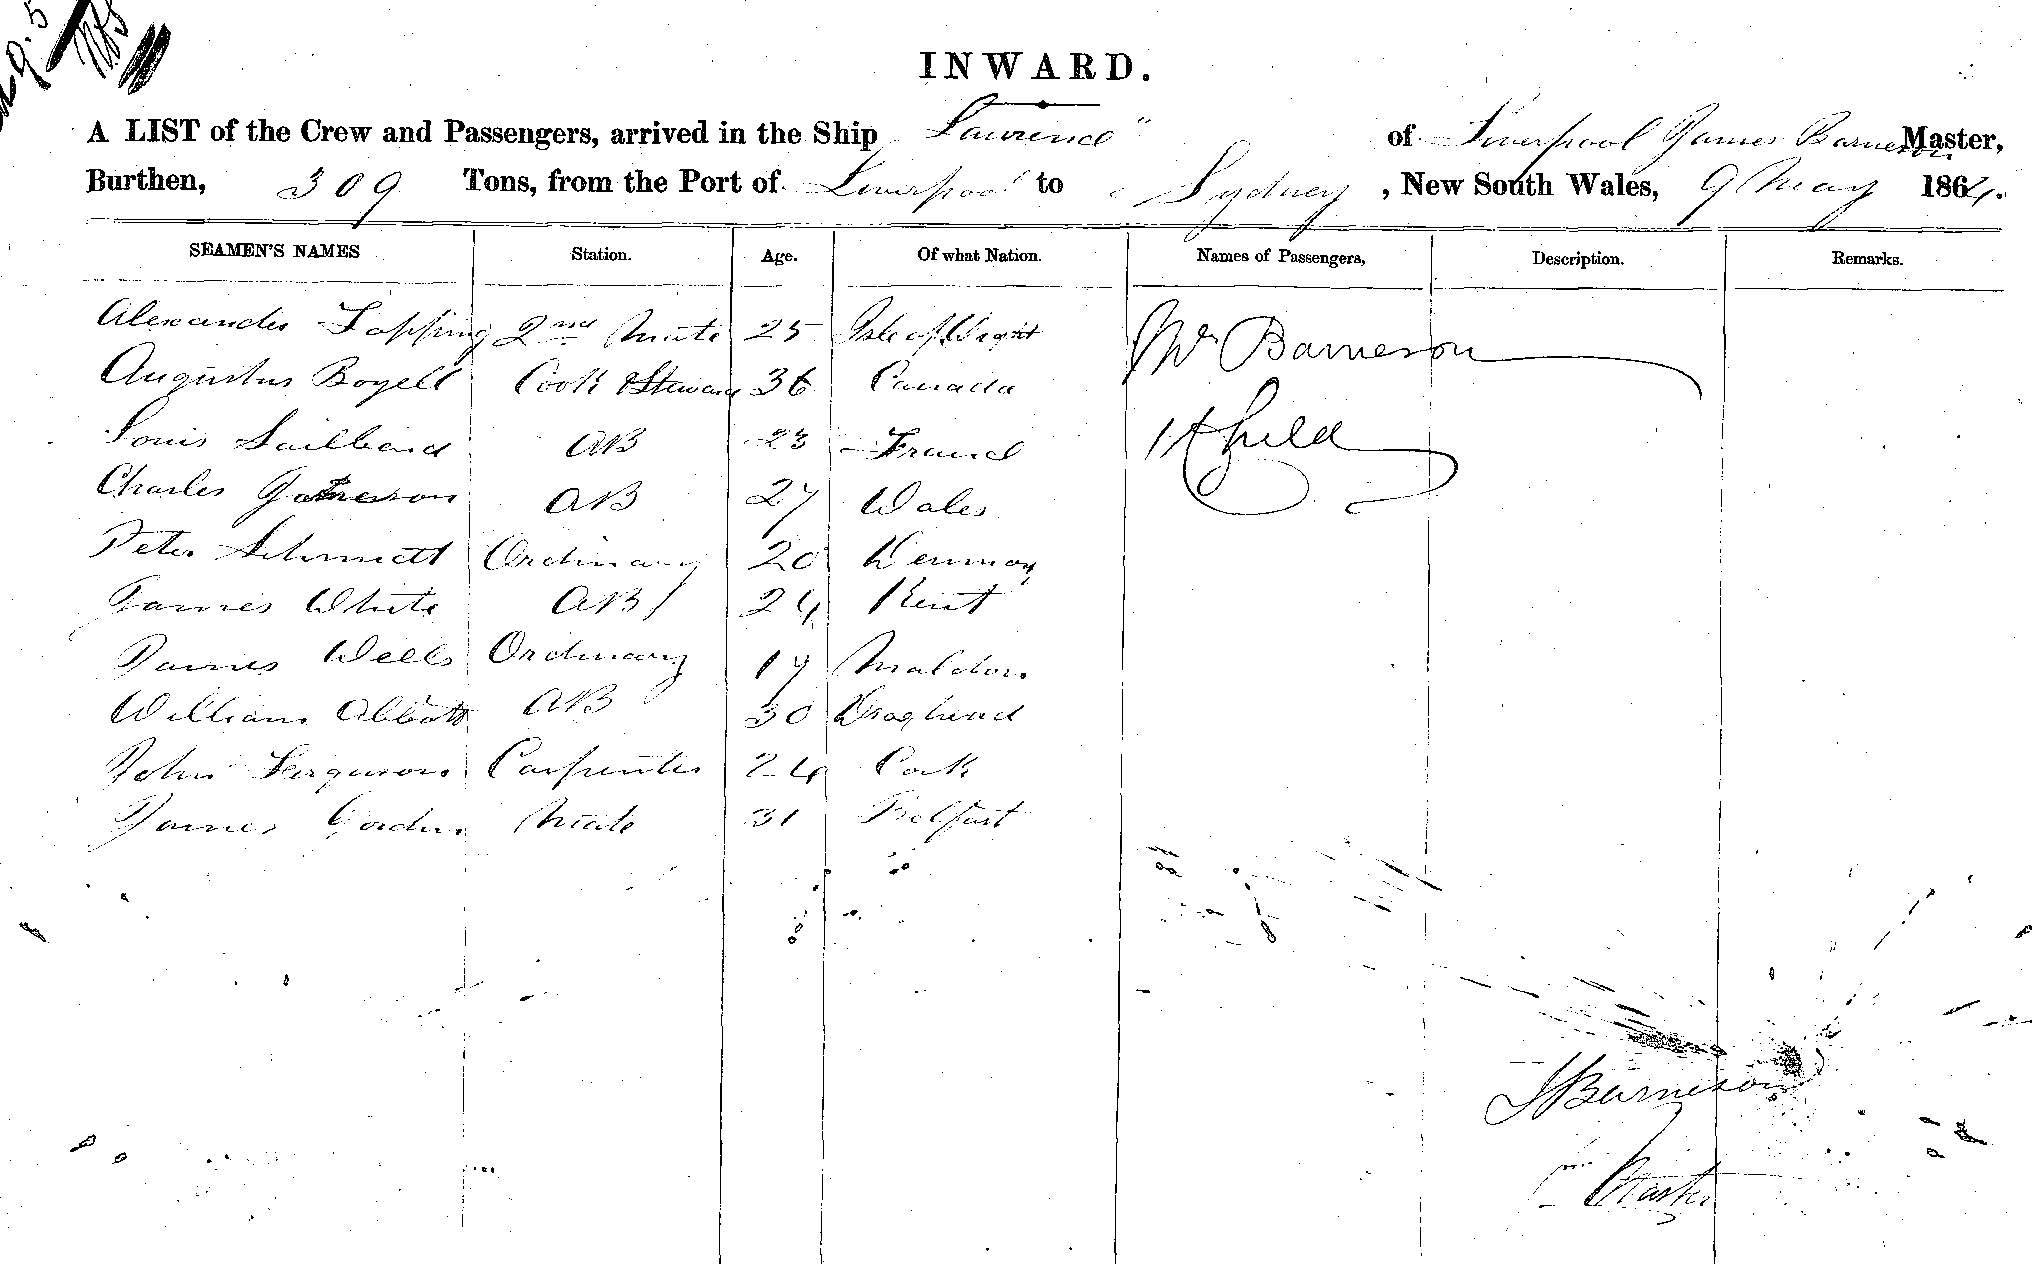 INWARD.
A LIST of the Crew and Passengers, arrived in the Ship "Lawrence" of Liverpool James Barneson Master,
Burthen, 309 Tons, from the Port of Liverpool to Sydney, New South Wales, 9 May 1864.
SEAMEN'S NAMES Station. Age. Of what Nation. Names of Passengers, Description. Remarks.
Alexander Topping 2nd Mate 25 Isle of Wight Mr Barneson
Augustus Bogell Cook & Steward 36 Canada
Louis AB 23 France
Charles AB 27 Wales
Peter Schmidt Ordinary 20 Denmark
James White AB 24 Kent
James Wells Ordinary 19 Maldon
William Abbott AB 30
John Ferguson Carpenter 24 Cork
James Gordon Mate 31 Belfast
J Barneson
Master